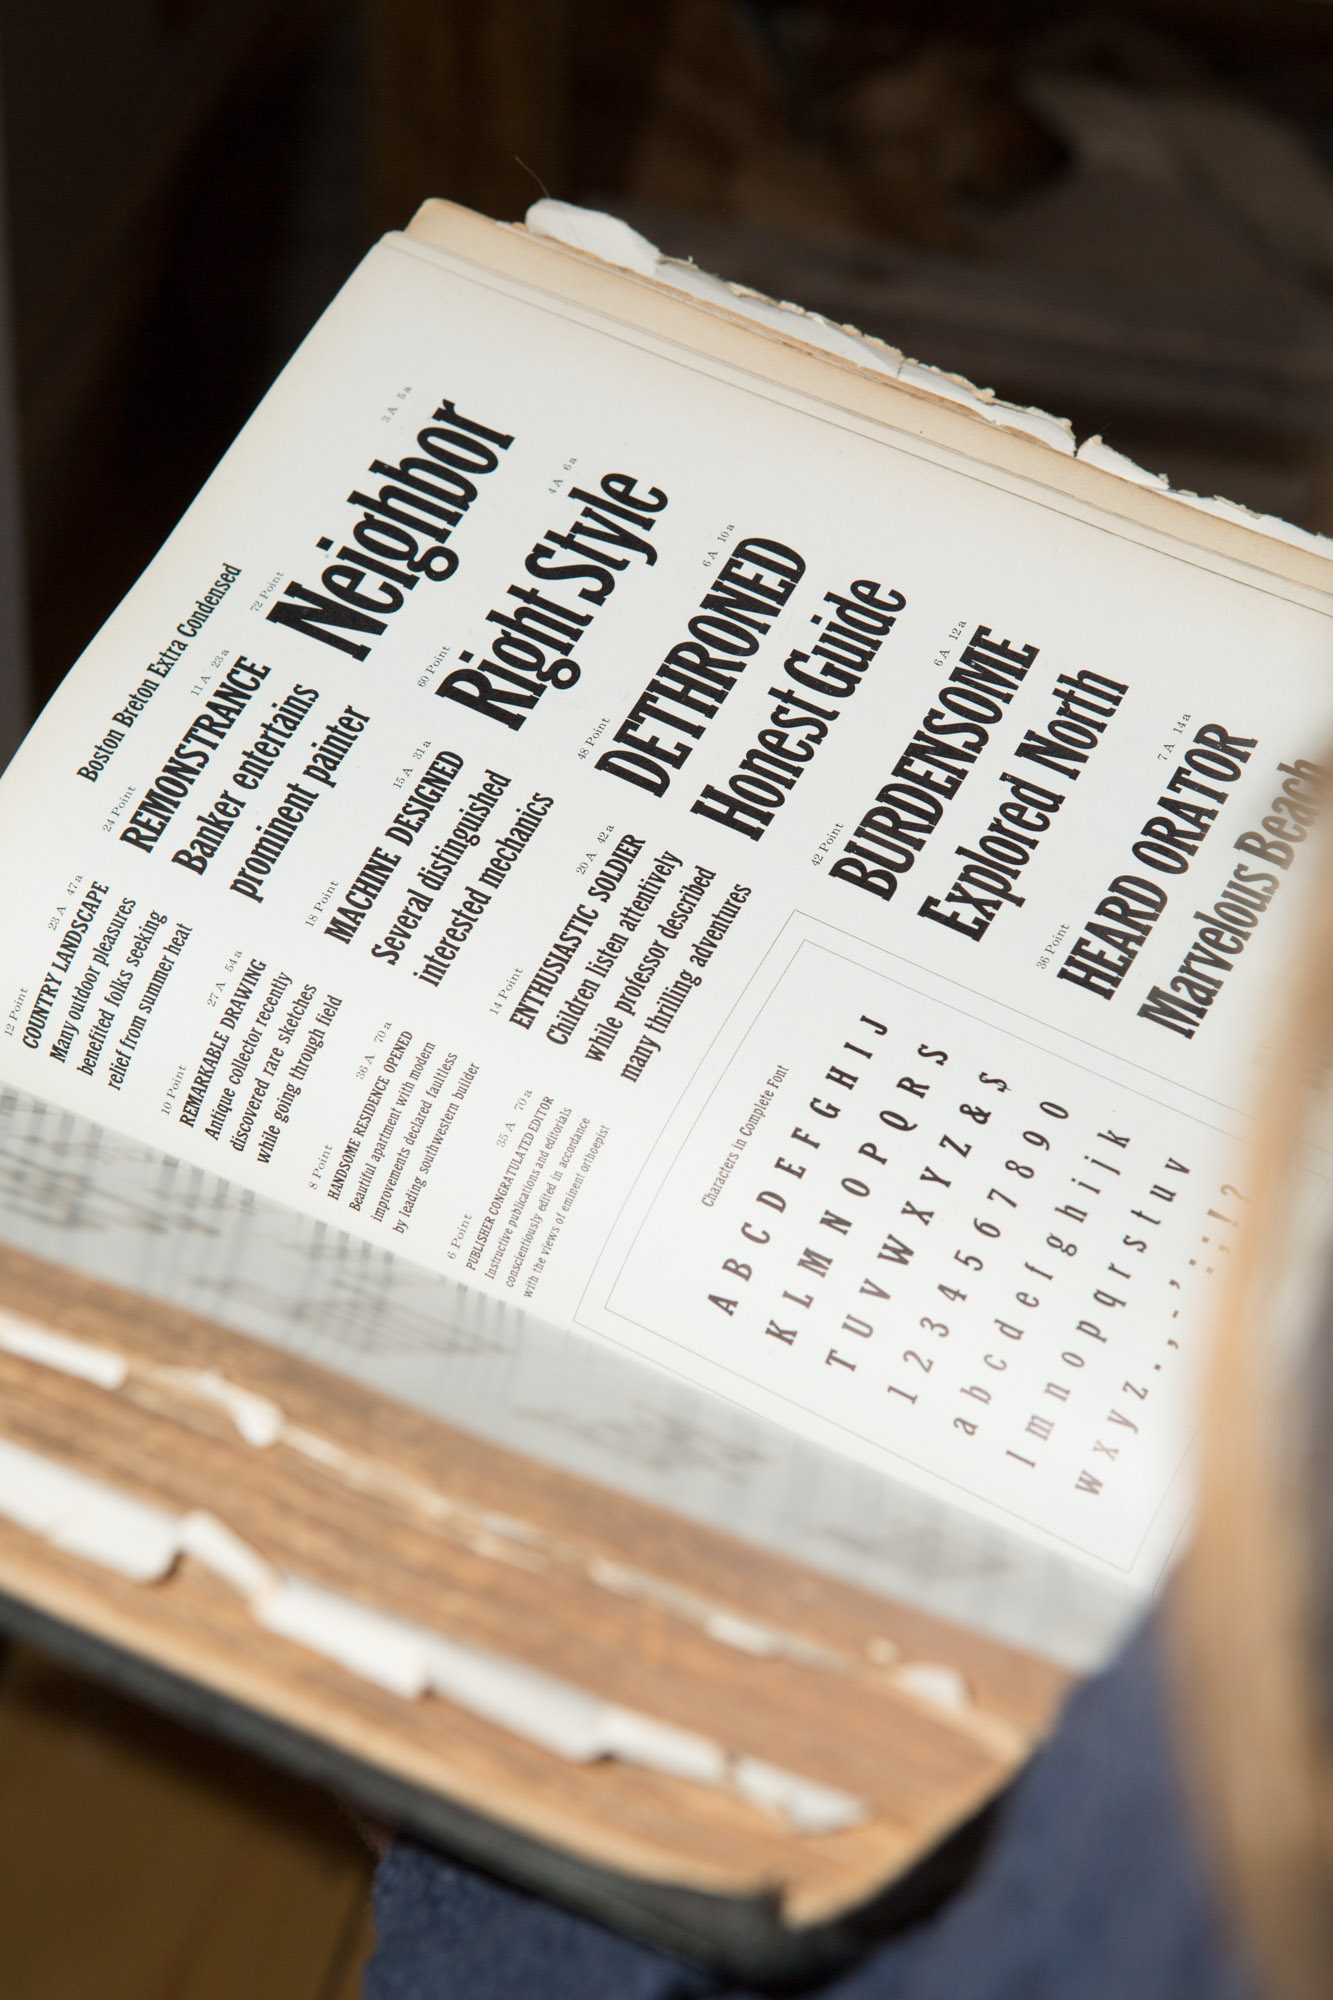 Boston Breton Extra Condensed
12 Point 23 A 47 a
COUNTRY LANDSCAPE
Many outdoor pleasures
benefited folks seeking
relief from summer heat
10 Point 27 A 54 a
REMARKABLE DRAWING
Antique collector recently
discovered rare sketches
while going through field
8 Point 36 A 70 a
HANDSOME RESIDENCE OPENED
Beautiful apartment with modern
improvements declared faultless
by leading southwestern builder
6 Point 35 A 70 a
PUBLISHER CONGRATULATED EDITOR
Instructive publications and editorials
conscientiously edited in accordance
with the views of eminent orthoepist
24 Point 11 A 23 a
REMONSTRANCE
Banker entertains
prominent painter
18 Point 15 A 31 a
MACHINE DESIGNED
Several distinguished
interested mechanics
14 Point 20 A 42 a
ENTHUSIASTIC SOLDIER
Children listen attentively
while professor described
many thrilling adventures
72 Point 3 A 5 a
Neighbor
60 Point 4 A 6 a
Right Style
48 Point 6 A 10 a
DETHRONED
Honest Guide
42 Point 6 A 12 a
BURDENSOME
Explored North
36 Point 7 A 14 a
HEARD ORATOR
Marvelous Beach
Characters in Complete Font
A B C D E F G H I J
K L M N O P Q R S
T U V W X Y Z & $
1 2 3 4 5 6 7 8 9 0
a b c d e f g h i j k
l m n o p q r s t u v
w x y z . , - ' : ; ! ?